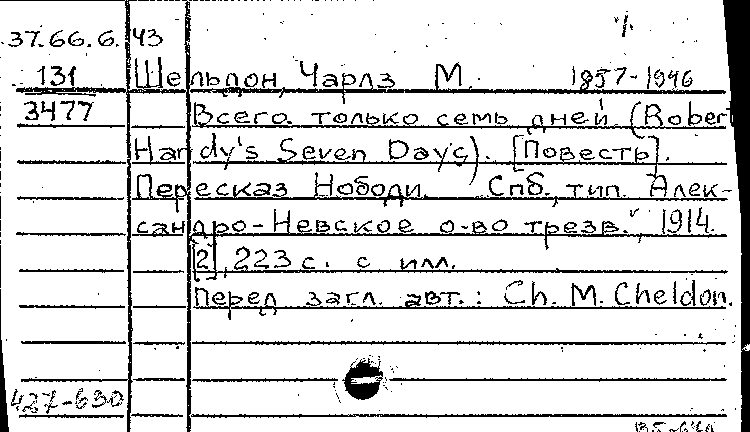 37.66.6. 43
131 Шельдон, Чарлз М. 1857-1946
3477 Всего только семь дней (Robert
Hardy's Seven Days). [Повесть].
Пересказ Нободи. Спб., тип. Алек-
сандро-Невское о-во трезв.", 1914.
[2], 223 с. с илл.
Перед загл. авт.: Ch. M. Cheldon.
427-630